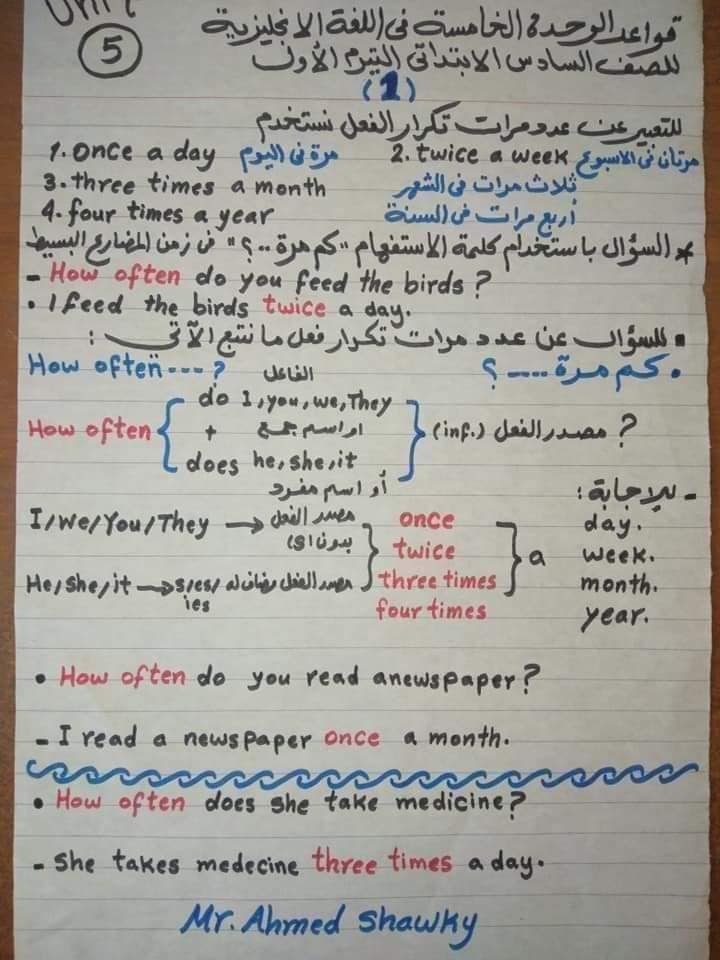 Unit
5
قواعد الوحدة الخامسة فى اللغة الإنجليزية
للصف السادس الابتدائى التيرم الأول
(1)
للتعبير عن عدد مرات تكرار الفعل نستخدم
1. once a day مرة فى اليوم 2. twice a week مرتان فى الاسبوع
3. three times a month ثلاث مرات فى الشهر
4. four times a year أربع مرات فى السنة
* السؤال باستخدام كلمة الاستفهام "كم مرة ..؟" فى زمن المضارع البسيط
- How often do you feed the birds?
• I feed the birds twice a day.
▪ للسؤال عن عدد مرات تكرار فعل ما نتبع الآتى :
How often ---? • كم مرة ---- ؟
الفاعل
do I, you, we, They
How often + او اسم جمع مصدر الفعل (inf.) ?
does he, she, it
أو اسم مفرد
- للإجابة :
I/We/You/They → مصدر الفعل once day.
بدون (s) twice a week.
He/She/it → s/es/ مصدر الفعل مضاف له three times month.
ies
four times year.
• How often do you read anewspaper?
- I read a newspaper once a month.
• How often does she take medicine?
- She takes medecine three times a day.
Mr. Ahmed Shawky